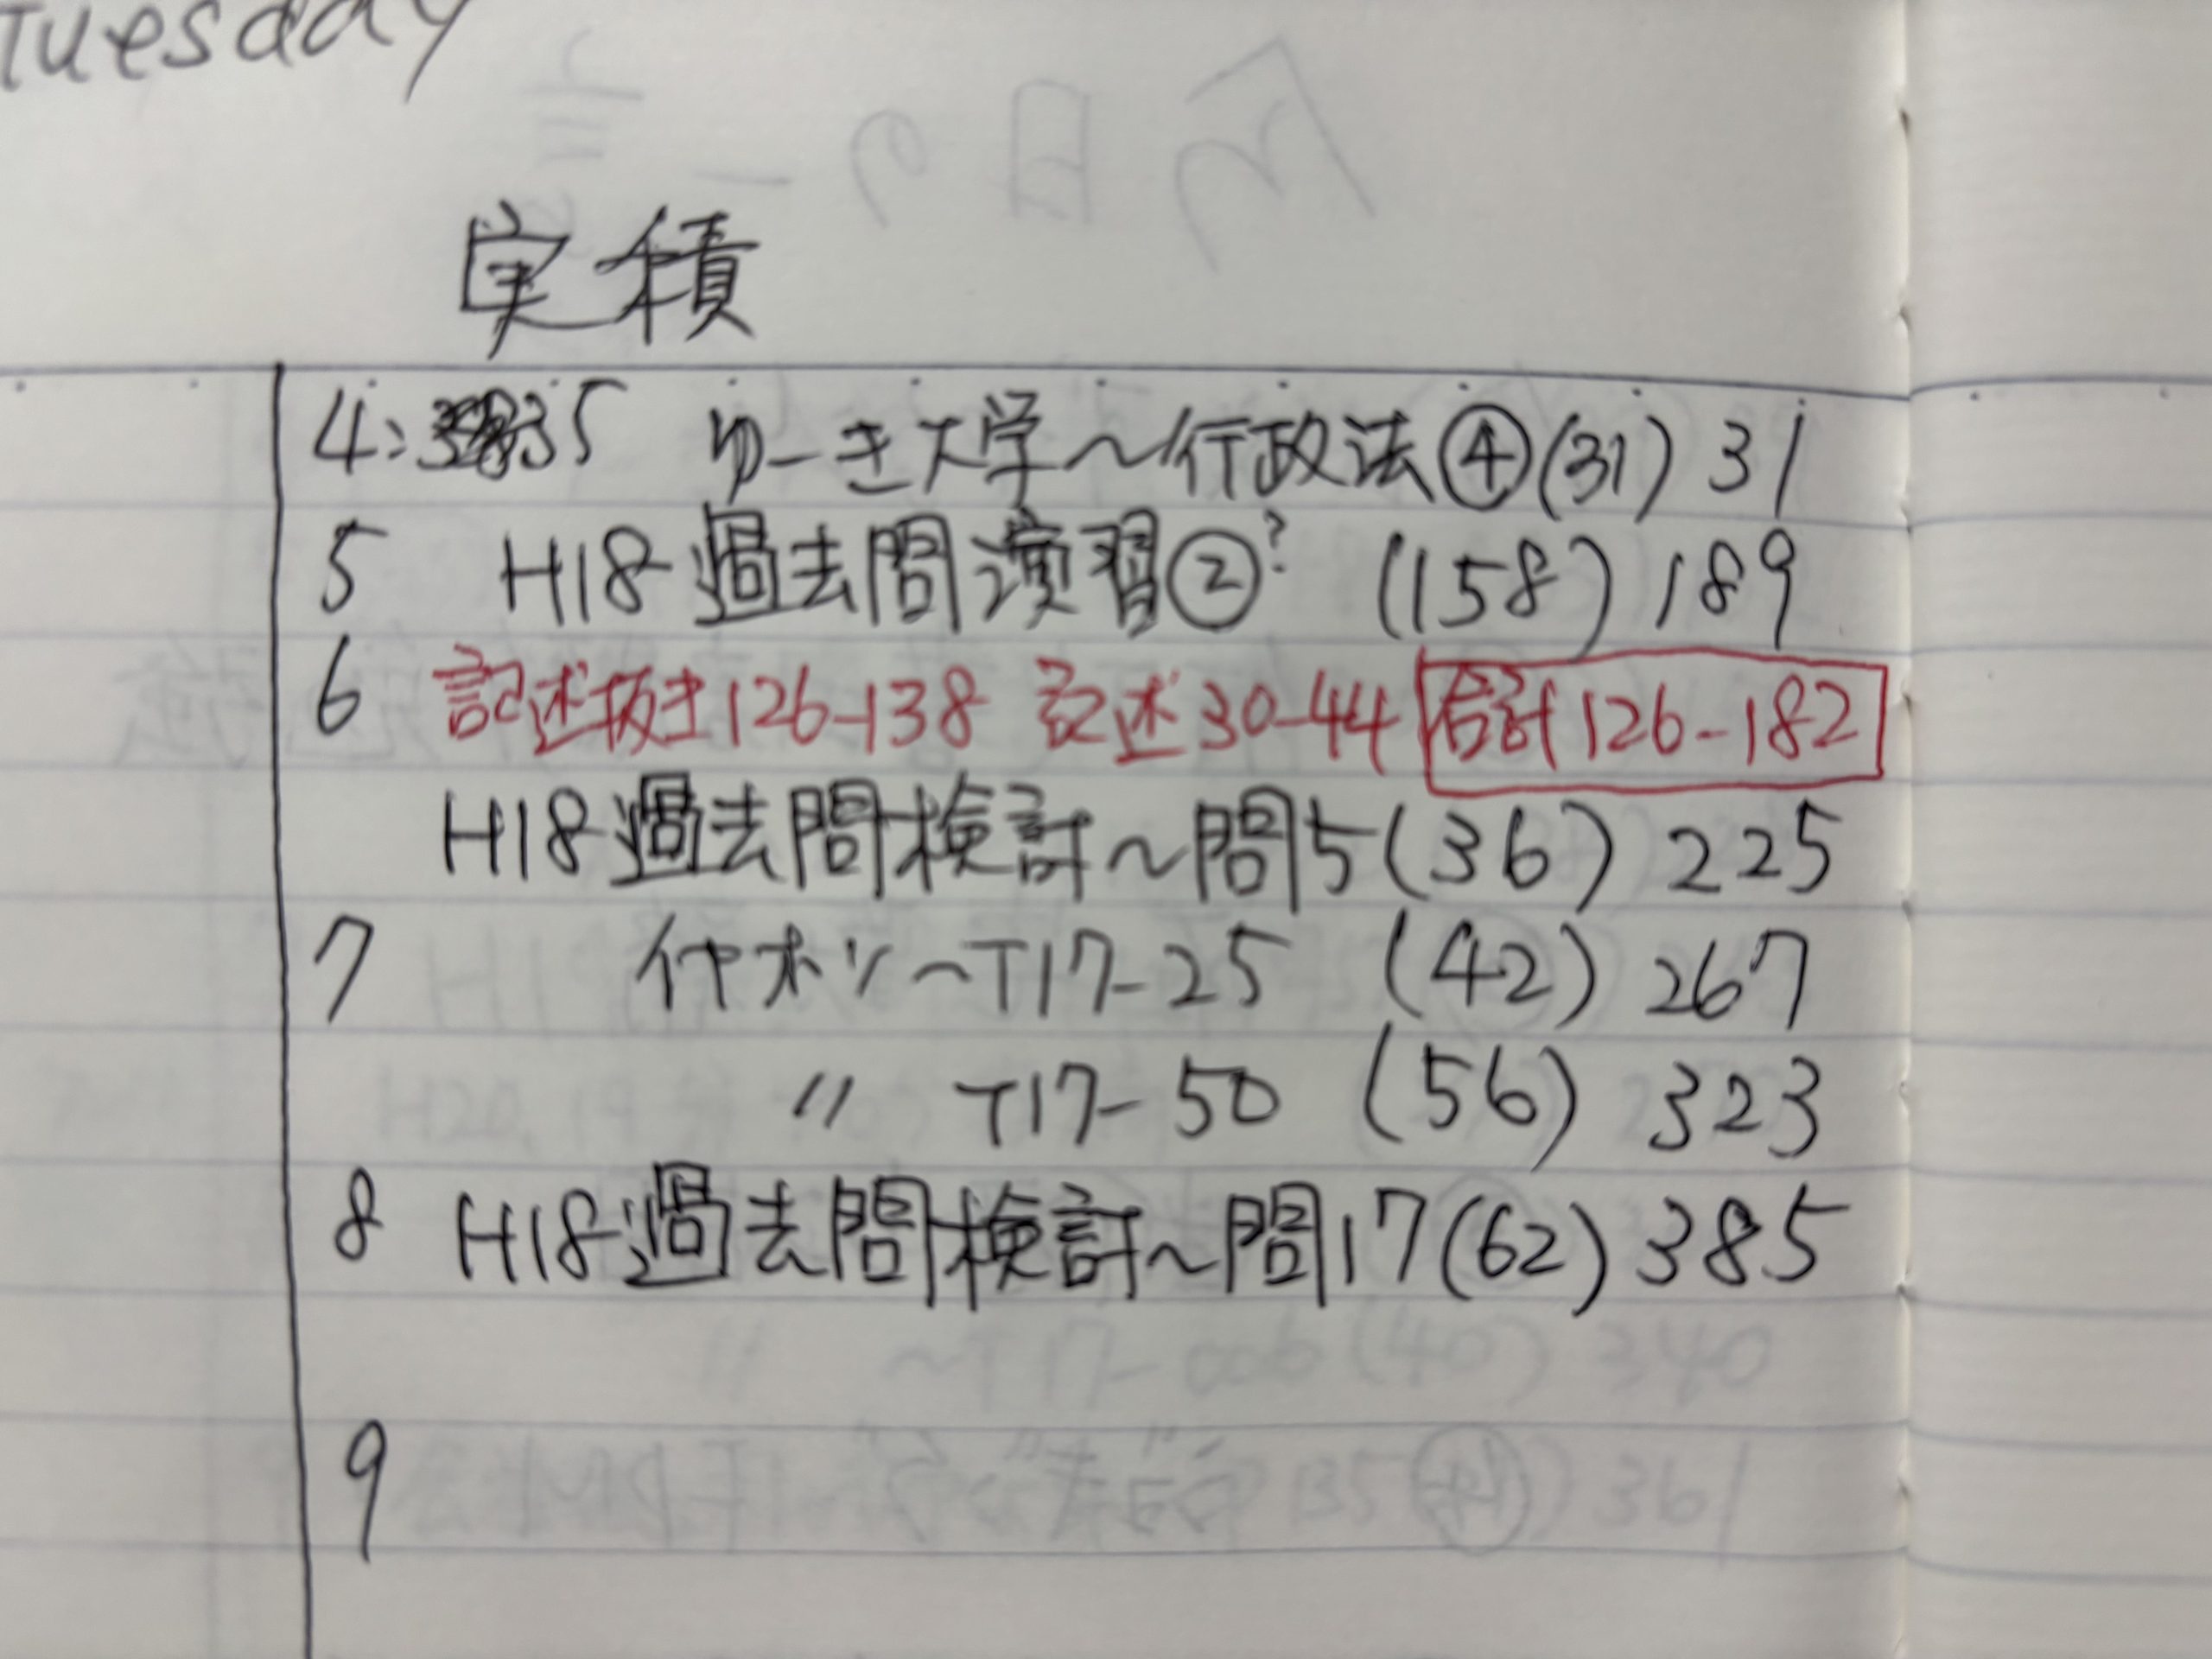 Tuesday
実積
4:35 ゆーき大学〜行政法④(31) 31
5 H18過去問演習②? (158) 189
6 記述抜き126-138 記述30-44 合計126-182
H18過去問検討〜問5(36) 225
7 イヤホン〜T17-25 (42) 267
〃 T17-50 (56) 323
8 H18過去問検討〜問17(62) 385
9